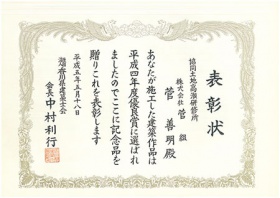 表彰状
協同土地高瀬研修所
株式会社 菅組
菅 善明殿
あなたが施工した建築作品は
平成四年度優良賞に選ばれ
ましたのでここに記念品を
贈りこれを表彰します
平成五年五月十八日
香川県建築士会
会長 中村利行